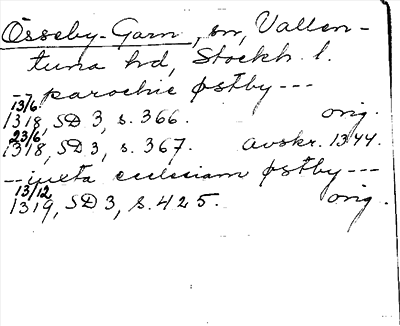 Össeby-Garn, sn, Vallen-
tuna hd, Stockh. l.
-- parochie østby ---
13/6 1318, SD 3, s. 366. orig.
23/6 1318, SD 3, s. 367. avskr. 1344.
-- iuxta ecclesiam østby ---
13/12 1319, SD 3, s. 425. orig.